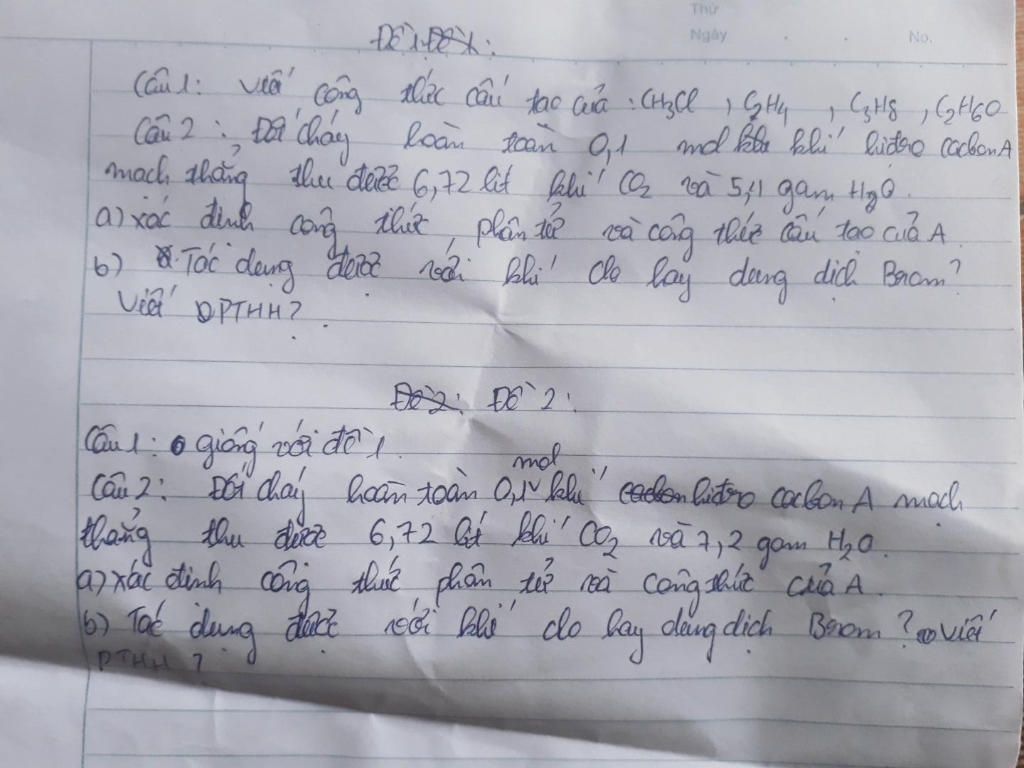 Thứ
Ngày . . No.
Đề 1:
Câu 1: Viết công thức cấu tạo của: CH3Cl, C2H4, C3H8, C2H6O
Câu 2: Đốt cháy hoàn toàn 0,1 mol khí hidro cacbon A
mạch thẳng thu được 6,72 lít khí CO2 và 5,4 gam H2O.
a) xác định công thức phân tử và công thức cấu tạo của A.
b) Tác dụng được với khí clo hay dung dịch Brom?
Viết PTHH?
Đề 2: Đề 2:
Câu 1: giống với đề 1.
mol
Câu 2: Đốt cháy hoàn toàn 0,1 khí hidro cacbon A mạch
thẳng thu được 6,72 lít khí CO2 và 7,2 gam H2O.
a) xác định công thức phân tử và công thức của A.
b) Tác dụng được với khí clo hay dung dịch Brom? Viết
PTHH?